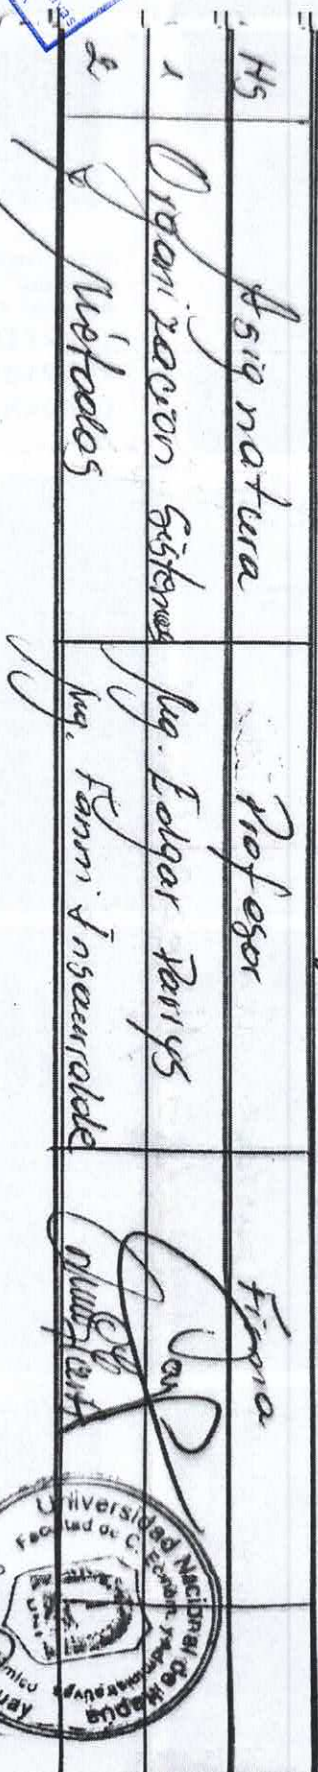 Hs Asignatura Profesor Firma
1 Organización Sistemas Ing. Edgar Parys
2 Métodos Ing. Fanni Insaurralde
Universidad Nacional de Itapúa
Facultad de C. Econom. y Administrativas